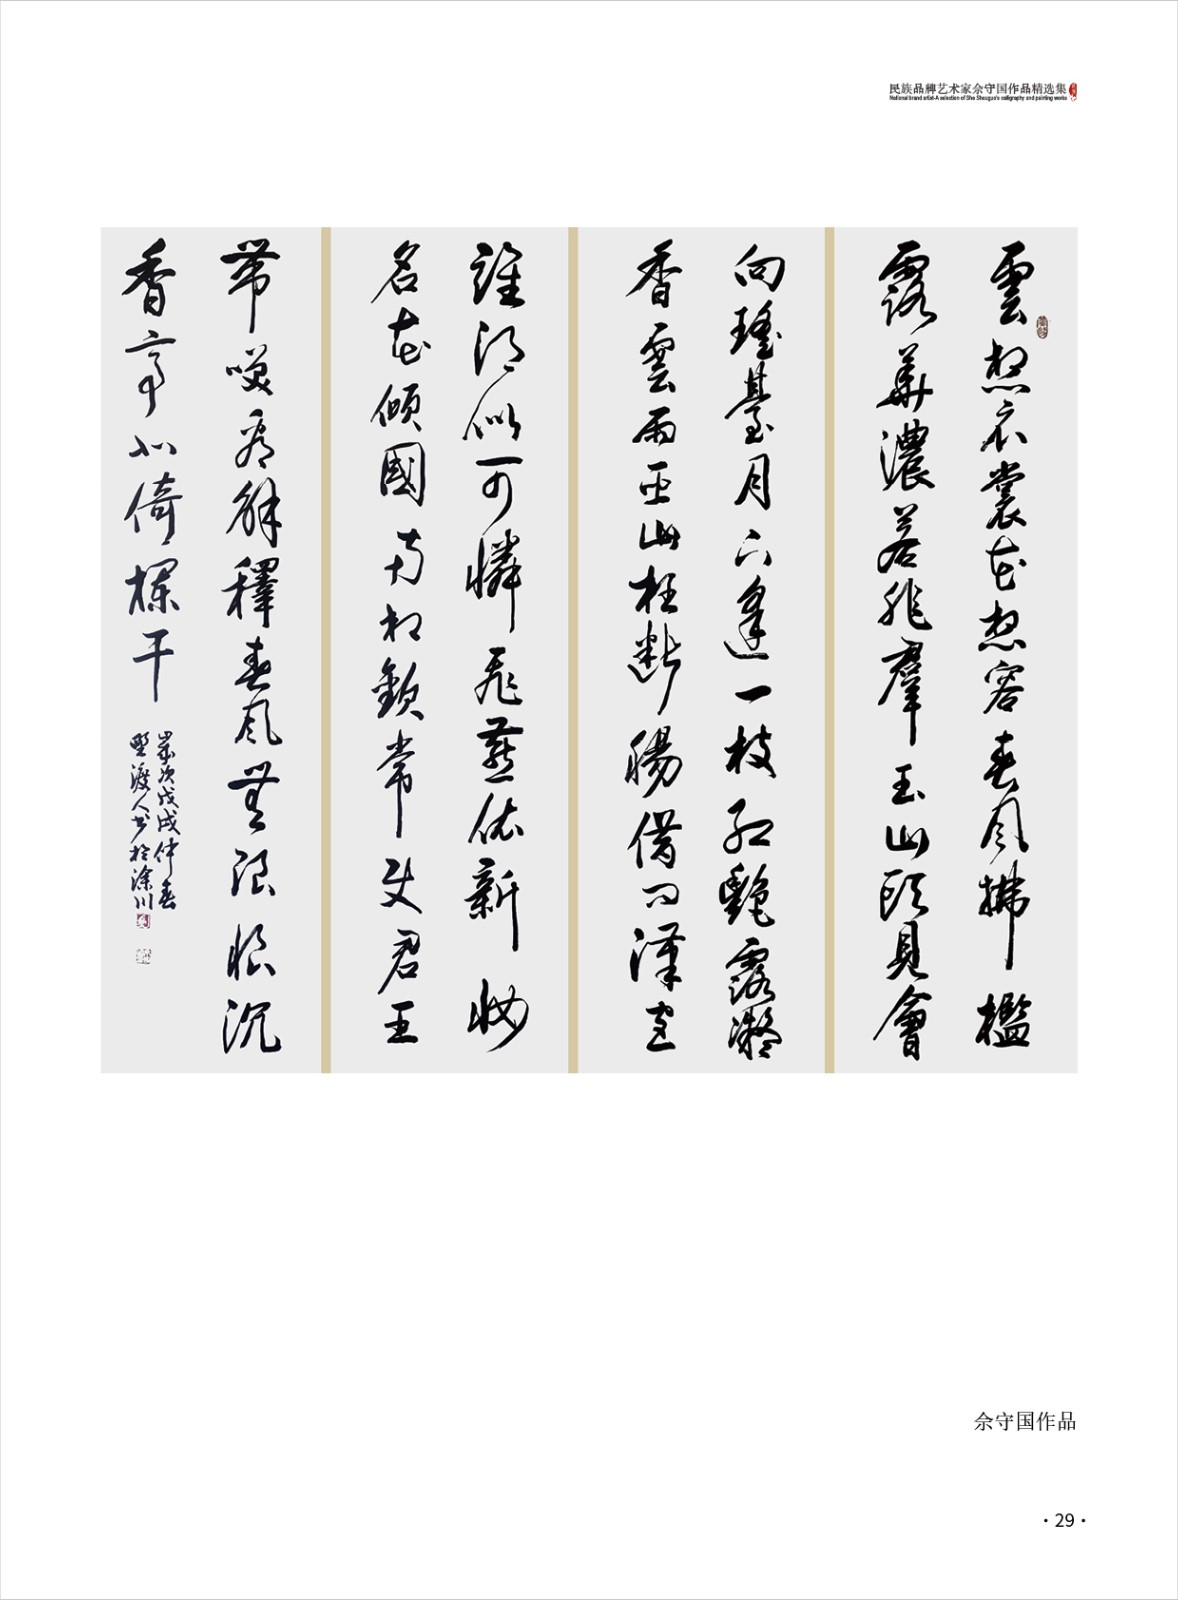 民族品牌艺术家佘守国作品精选集
National brand artist-A selection of She Shouguo's calligraphy and painting works
雲想衣裳花想容春風拂檻
露華濃若非羣玉山頭見會
向瑤臺月下逢一枝紅艷露凝
香雲雨巫山枉斷腸借問漢宮
誰得似可憐飛燕依新妝
名花傾國兩相歡常君王
帶笑看解釋春風無限恨沉
香亭北倚欄干
歲次戊戌仲春
野渡人書於涂川
佘守国作品
·29·